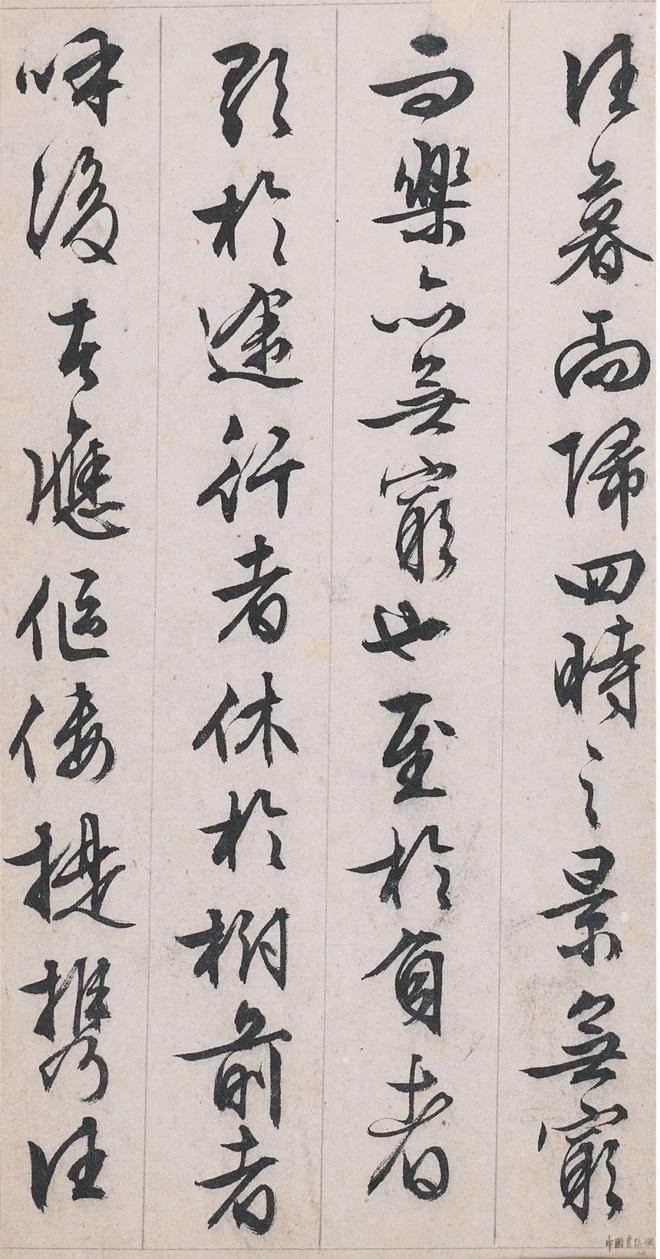 往暮而歸四時之景無窮
而樂亦無窮也至於負者
歌於途行者休於樹前者
呼後者應傴僂提攜往